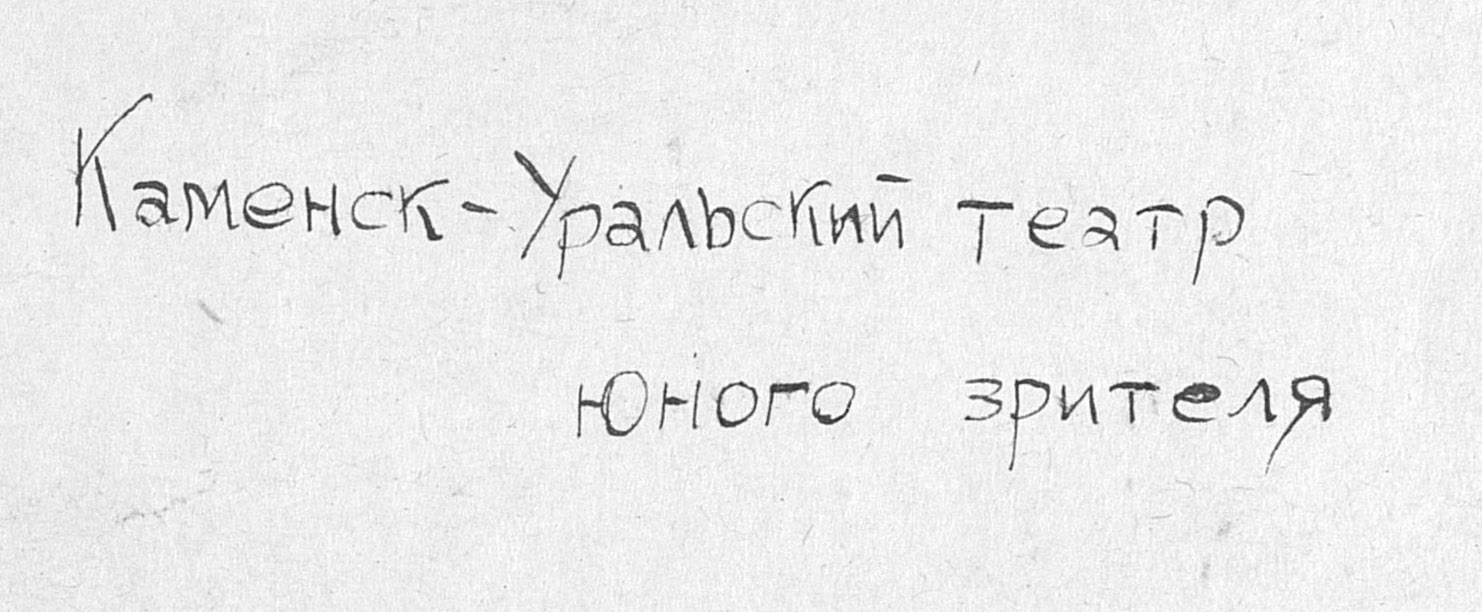 Каменск-Уральский театр
юного зрителя